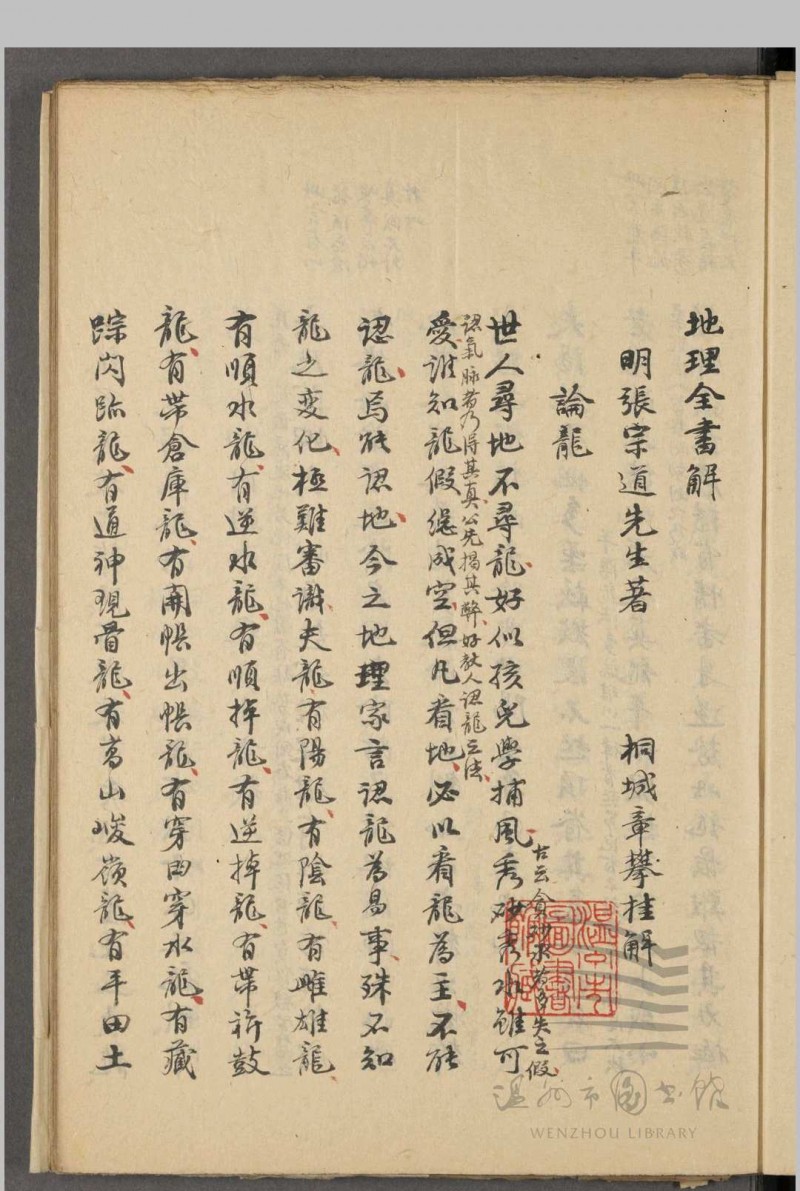 地理全書解
明張宗道先生著　桐城章攀桂解
論龍
世人尋地不尋龍好似孩兒學捕風秀砂秀水雖可
古云貪砂水者多失之假
認氣脉者乃得其真公先揭其醉好教人認龍之法
愛誰知龍假總成空但凡看地必以看龍為主不能
認龍焉能認地今之地理家言認龍為易事殊不知
龍之变化極難審識夫龍有陽龍有陰龍有雌雄龍
有順水龍有逆水龍有順掉龍有逆掉龍有帶旂鼓
龍有帶倉庫龍有開帳出帳龍有穿田穿水龍有藏
踪閃跡龍有通神現骨龍有高山峻嶺龍有平田土
温州市圖書館
WENZHOU LIBRARY